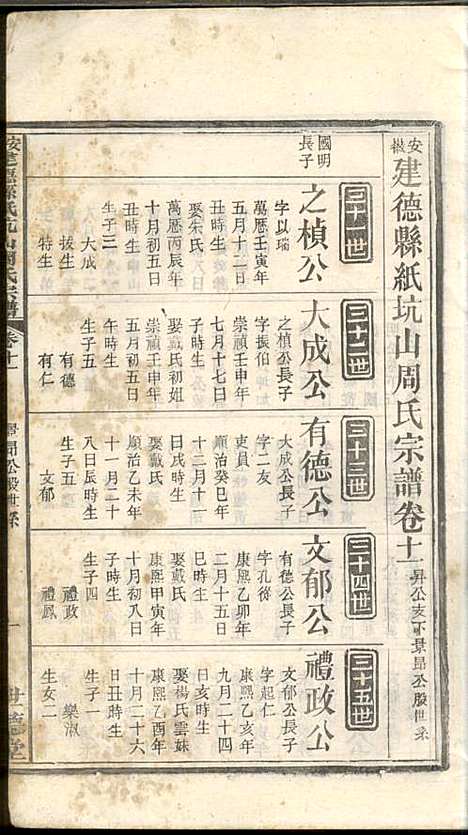 安徽建德縣紙坑山周氏宗譜卷十一 昇公支下景昌公股世系
三十一世
國明長子
之楨公
字以瑞
萬曆壬寅年
五月十二日
丑時生
娶朱氏
萬曆丙辰年
十月初五日
丑時生
生子三
大成
拔生
特生
三十二世
大成公
之楨公長子
字振伯
崇禎壬申年
七月十七日
生時生
娶戴氏初姐
崇禎壬申年
五月初五日
午時生
生子五
有德
有仁
三十三世
有德公
大成公長子
字二友
吏員
順治癸巳年
十二月十一
日戌時生
娶戴氏
順治乙未年
十一月二十
八日辰時生
生子五
文郁
三十四世
文郁公
有德公長子
字孔從
康熙乙卯年
二月十五日
巳時生
娶戴氏
康熙甲寅年
十月初八日
子時生
生子四
禮政
禮鳳
三十五世
禮政公
文郁公長子
字起仁
康熙
九月二十四
日亥時生
娶楊氏雲妹
康熙乙酉年
十月二十六
日丑時生
生子一
樂淑
生女二
安建德縣紙坑山周氏宗譜
卷十一
景昌公股世系
一
世德堂